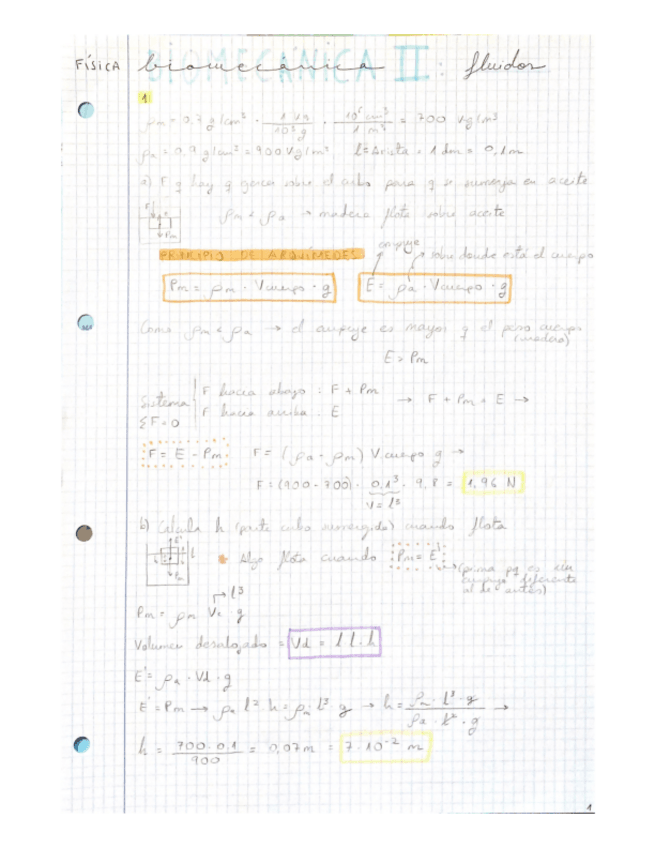 FÍSICA biomecánica II: fluidos
BIOMECÁNICA
1
ρm = 0,7 g/cm³ · 1 kg / 10³ g · 10⁶ cm³ / 1 m³ = 700 kg/m³
ρa = 0,9 g/cm³ = 900 kg/m³ l = arista = 1 dm = 0,1 m
a) F q hay q ejercer sobre el cubo para q se sumerja en aceite
ρm < ρa → madera flota sobre aceite
PRINCIPIO DE ARQUÍMEDES
empuje
sobre donde está el cuerpo
Pm = ρm · Vcuerpo · g E = ρa · Vcuerpo · g
Como ρm < ρa → el empuje es mayor q el peso cuerpo
(madera)
E > Pm
Sistema
ΣF = 0
F hacia abajo : F + Pm
F hacia arriba : E
→ F + Pm = E →
F = E - Pm F = (ρa - ρm) Vcuerpo g →
F = (900 - 700) · 0,1³ · 9,8 = 1,96 N
V = l³
b) Calcula h (parte cubo sumergida) cuando flota
* Algo flota cuando Pm = E'
(prima pq es un
empuje diferente
al de antes)
l³
Pm = ρm Vc · g
Volumen desalojado = Vd = l · l · h
E' = ρa · Vd · g
E' = Pm → ρa l² h = ρm · l³ g → h = ρm · l³ · g / ρa · l² · g →
h = 700 · 0,1 / 900 = 0,07 m = 7 · 10⁻² m
1